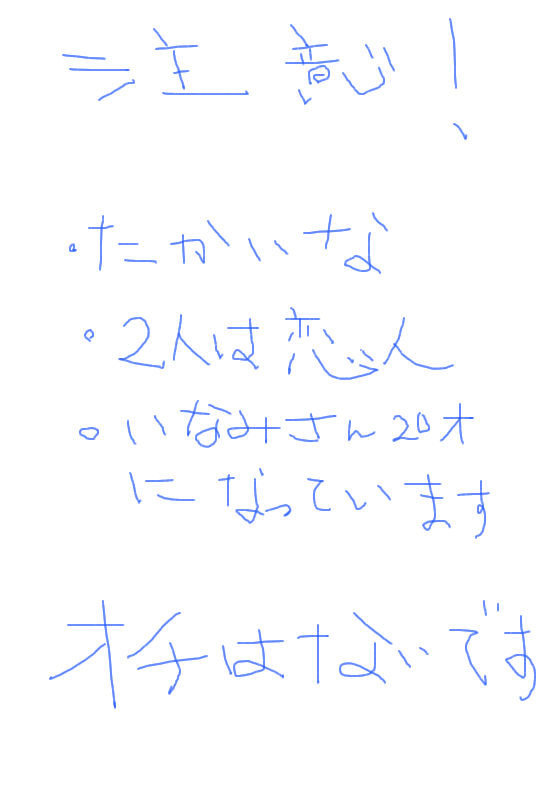 注意!
・たかいな
・2人は恋人
・いなみさん20才
になっています
オチはないです